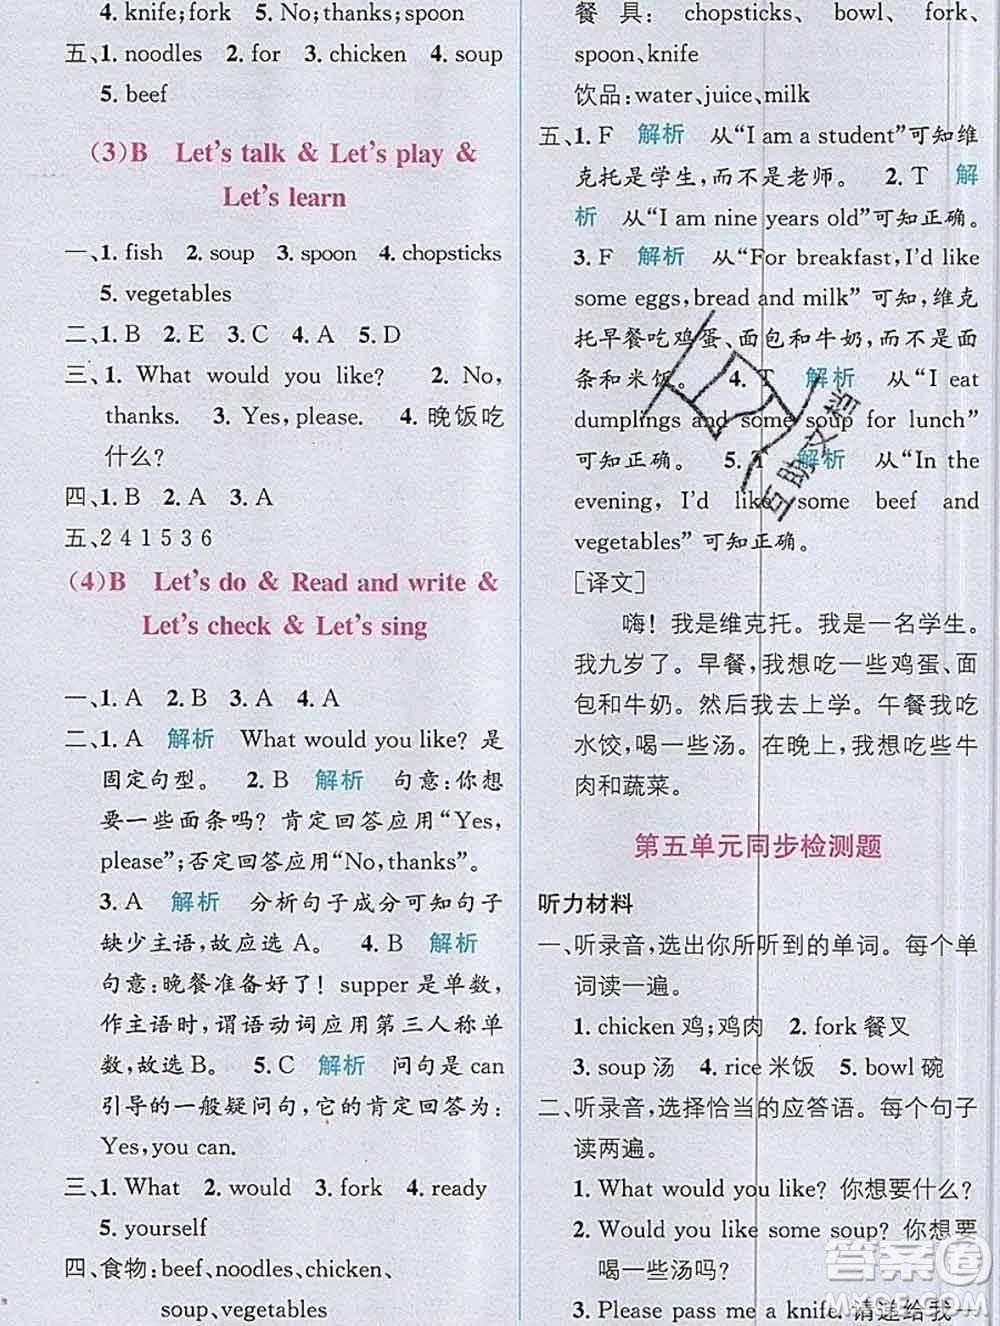 4. knife;fork 5. No;thanks;spoon
五、1. noodles 2. for 3. chicken 4. soup
5. beef
(3)B Let's talk & Let's play &
Let's learn
一、1. fish 2. soup 3. spoon 4. chopsticks
5. vegetables
二、1. B 2. E 3. C 4. A 5. D
三、1. What would you like? 2. No,
thanks. 3. Yes,please. 4. 晚饭吃
什么?
四、1. B 2. A 3. A
五、2 4 1 5 3 6
(4)B Let's do & Read and write &
Let's check & Let's sing
一、1. A 2. B 3. A 4. A
二、1. A 解析 What would you like? 是
固定句型。 2. B 解析 句意:你想
要一些面条吗? 肯定回答应用“Yes,
please”;否定回答应用“No,thanks”。
3. A 解析 分析句子成分可知句子
缺少主语,故应选 A。 4. B 解析
句意:晚餐准备好了! supper 是单数,
作主语时,谓语动词应用第三人称单
数,故选 B。 5. C 解析 问句是 can
引导的一般疑问句,它的肯定回答为:
Yes,you can.
三、1. What 2. would 3. fork 4. ready
5. yourself
四、食物:beef、noodles、chicken、
soup、vegetables
餐具: chopsticks、bowl、fork、
spoon、knife
饮品:water、juice、milk
五、1. F 解析 从“I am a student”可知维
克托是学生,而不是老师。 2. T 解
析 从“I am nine years old”可知正确。
3. F 解析 从“For breakfast,I'd like
some eggs,bread and milk”可知,维克
托早餐吃鸡蛋、面包和牛奶,而不是面
条和米饭。 4. T 解析 从“I eat
dumplings and some soup for lunch”
可知正确。 5. T 解析 从“In the
evening, I'd like some beef and
vegetables”可知正确。
[译文]
嗨! 我是维克托。我是一名学生。
我九岁了。早餐,我想吃一些鸡蛋、面
包和牛奶。然后我去上学。午餐我吃
水饺,喝一些汤。在晚上,我想吃些牛
肉和蔬菜。
第五单元同步检测题
听力材料
一、听录音,选出你所听到的单词。每个单
词读一遍。
1. chicken 鸡;鸡肉 2. fork 餐叉
3. soup 汤 4. rice 米饭 5. bowl 碗
二、听录音,选择恰当的应答语。每个句子
读两遍。
1. What would you like? 你想要什么?
2. Would you like some soup? 你想要
喝一些汤吗?
3. Please pass me a knife. 请递给我一
互助文档
答案圈
MXQE.COM